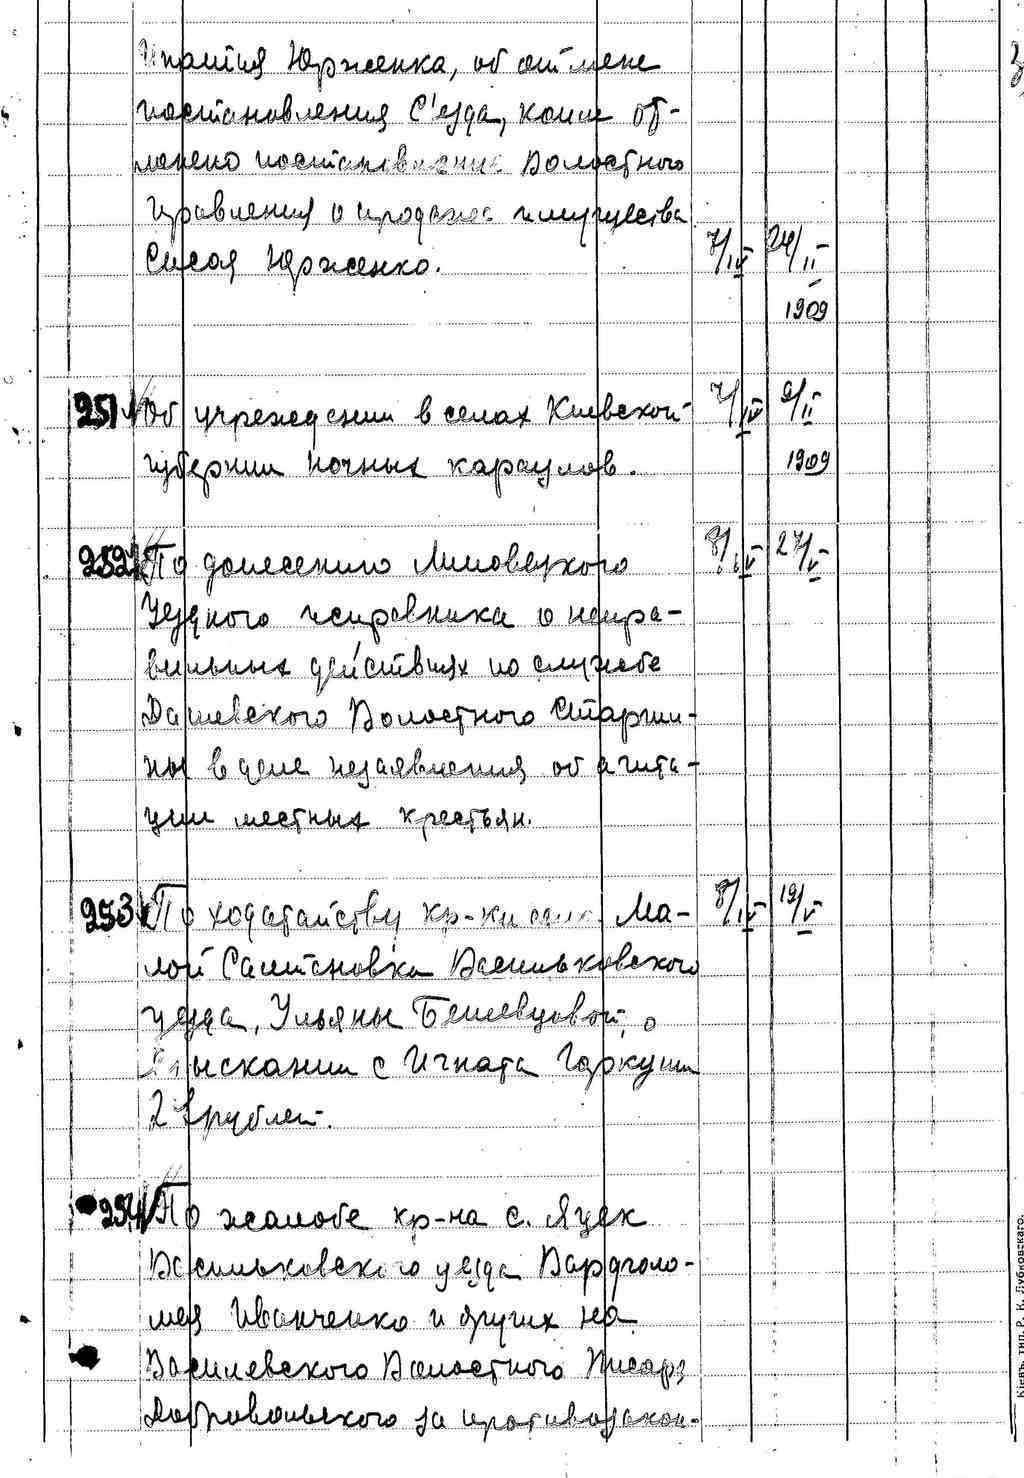 Ипатия Юрженка, об отмене
постановления С'езда, коим от-
менено постановление Волостного
правления о продаже имущества
Сисоя Юрженко. 7/IV 24/II
1909
251 Об учреждении в селах Киевской 7/IV 9/II
губернии ночных караулов. 1909
252 По донесению Липовецкого 8/IV 27/V
Уездного исправника о непра-
вильных действиях по службе
Дашевского Волостного Старши-
ны в деле незаявления об агита-
ции местных крестьян.
253 По ходатайству кр-ки села Ма- 8/IV 19/V
лой Салтановки Васильковского
уезда, Ульяны о
взыскании с Игната Гаркуши
рублей.
254 По жалобе кр-на с. Яцек
Васильковского уезда Варфоло-
мея Иванченко и других на
Василевского Волостного Писаря
Добровольского за противозакон-
Кіевъ, тип. Р. К. Лубковскаго.